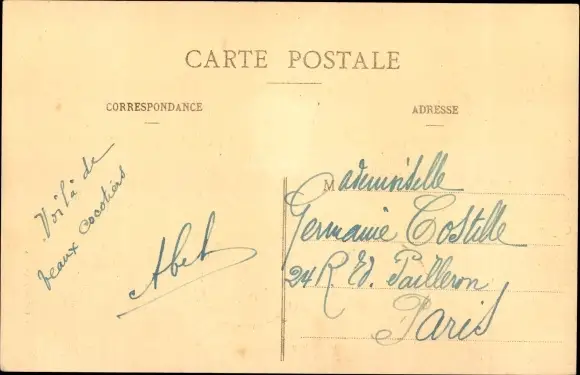 CARTE POSTALE
CORRESPONDANCE
ADRESSE
Voilà de
beaux cocotiers
Abel
Mademoiselle
Germaine Costille
24 R. Ed. Pailleron
Paris